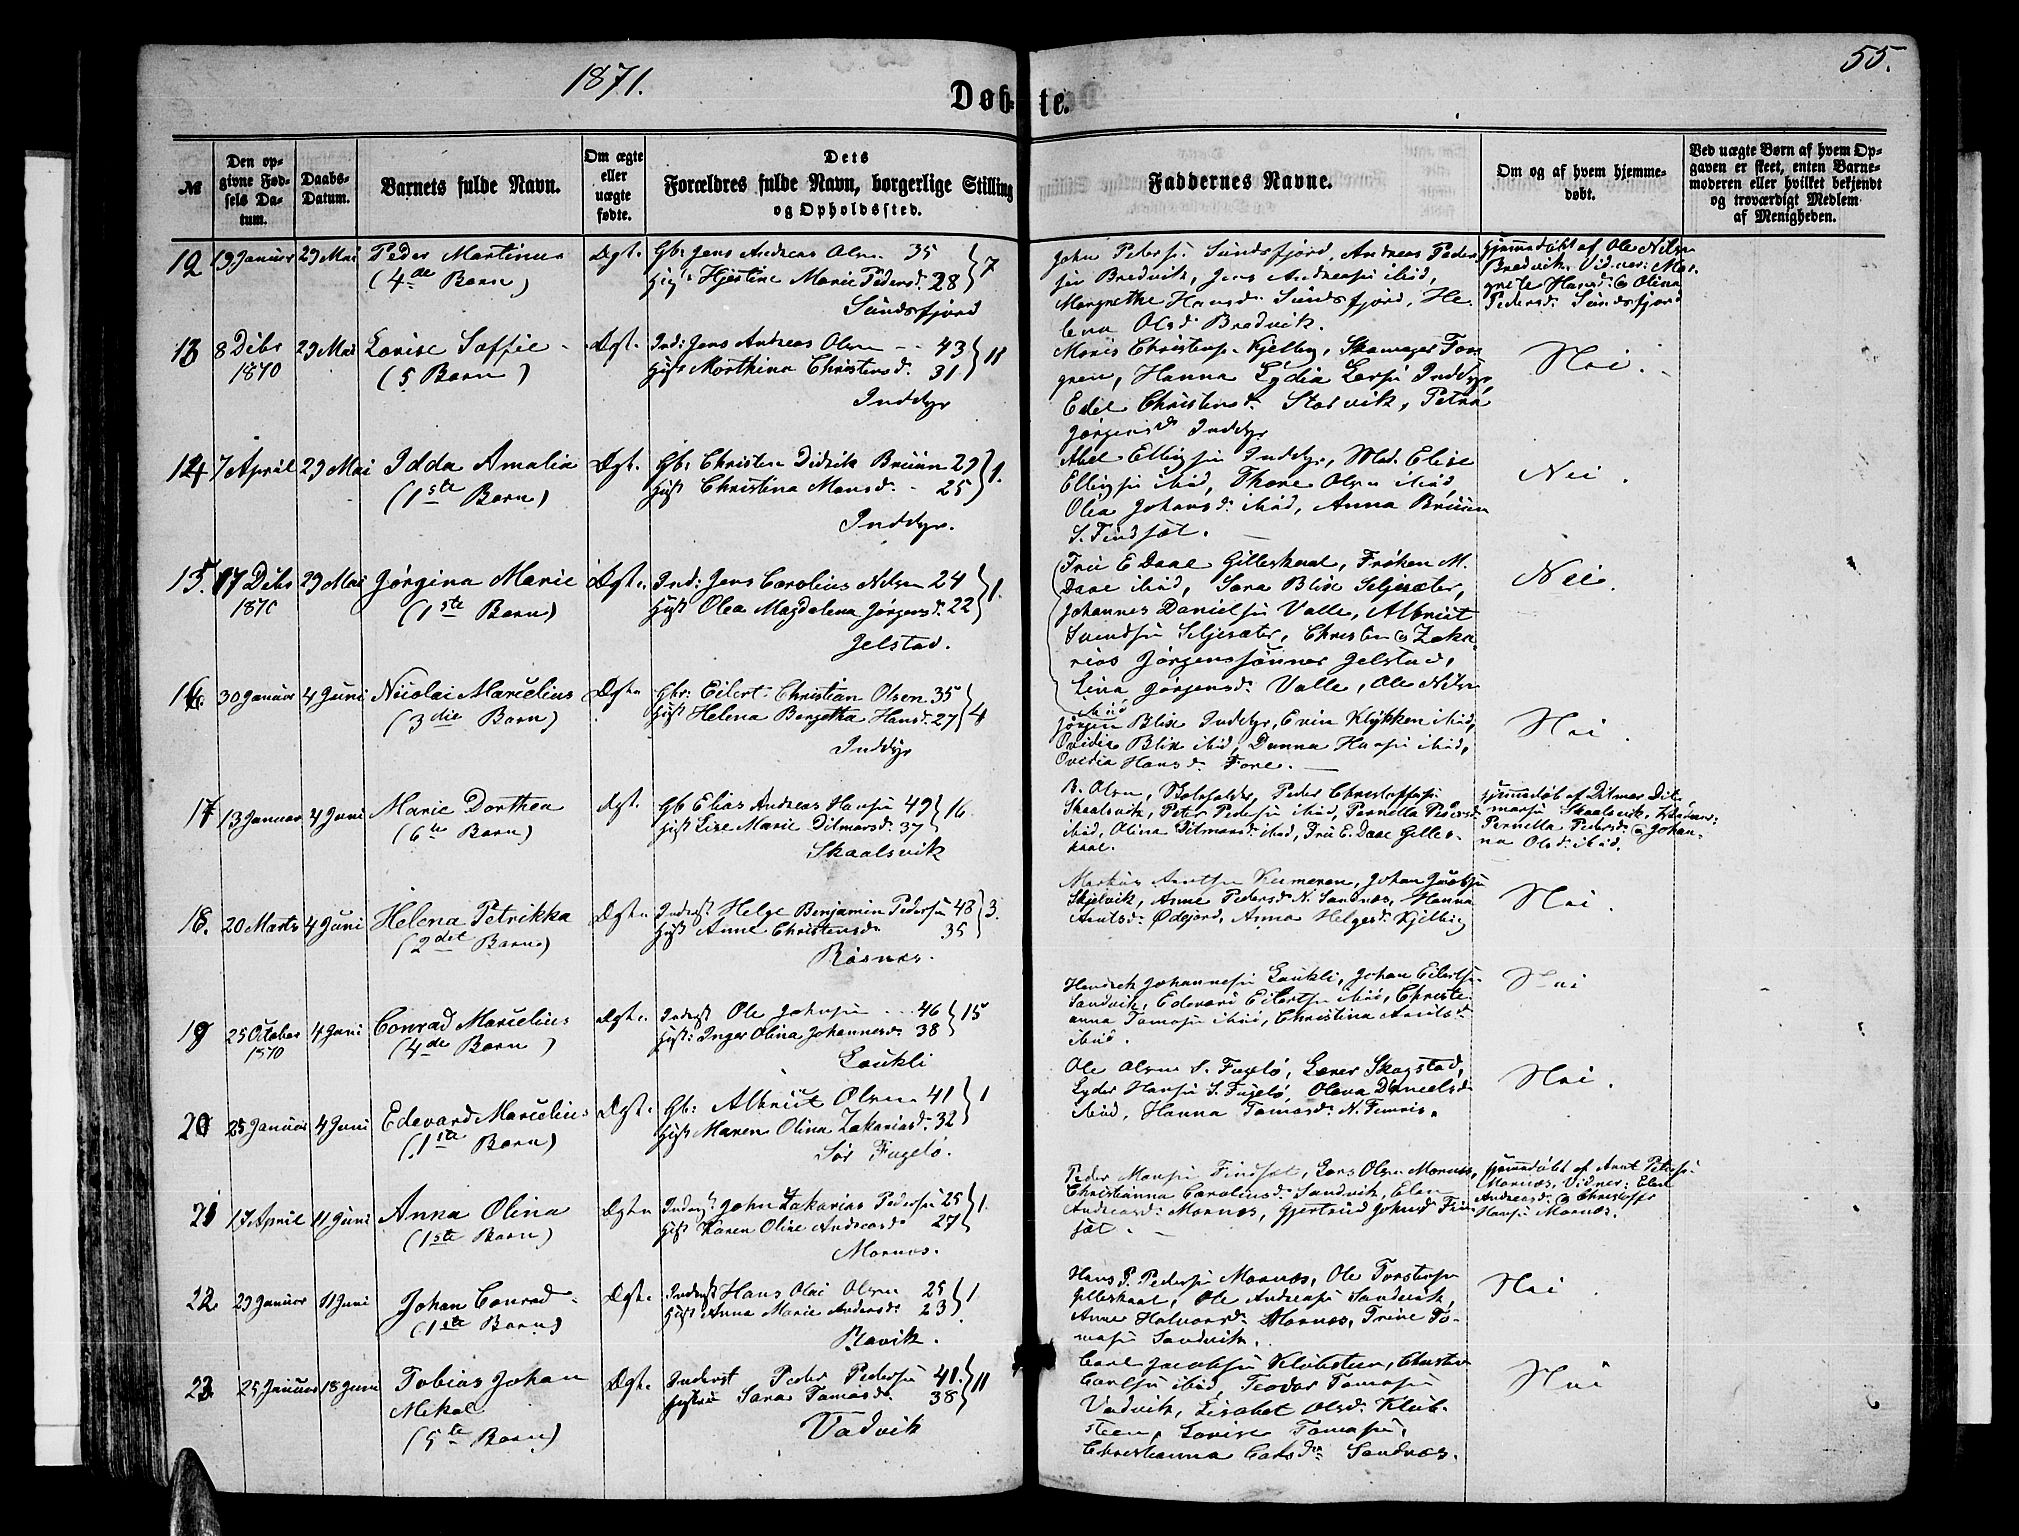 1871.
55.
Døbte.
№
Den op-
givne Fød-
sels Da-
tum.
Daabs-
Datum.
Barnets fulde Navn.
Om ægte
eller
uægte
fødte.
Dets
Forældres fulde Navn, borgerlige Stilling
og Opholdssted.
Faddernes Navne.
Om og af hvem hjemme-
døbt.
Ved uægte Børn af hvem Op-
gaven er skeet, enten Barne-
moderen eller hvilket bekjendt
og troværdigt Medlem
af Menigheden.
12 19 Januar 29 Mai Peder Martinus
(4de Barn)
Ægt.
Gb: Jens Andreas Olsen 35
Hjertine Marie Pedersd. 28 } 7
Sundsfjord
John Peders. Sundsfjord, Andreas Peder-
sen Bredvik, Jens Andreasen ibid,
Margrethe Hansd. Sundsfjord, He-
lena Olsd. Bredvik.
hjemmedøbt af Ole Nilsen
Bredvik, Vidner: Mar-
grete Hansd. & Olina
Pedersd. Sundsfjord
13 8 Debr 29 Mai Lovise Soffie
1870 (5 Barn)
Ægt.
Ind: Jens Andreas Olsen 43
Hust Morthina Christensd. 31 } 11
Inddyr
Kjelling, Skomager
Hanna Lydia Inddyr,
Edel Christensd. Storvik, Petra
Jørgensd. Inddyr
Nei.
14 7 April 29 Mai Idda Amalia
(1ste Barn)
Ægt.
Gb: Christen Didrik Bruun 29
Hust Christina Monsd. 25 } 1.
Inddyr.
Abel Ellingsen Inddyr, Mad. Elise
Ellingsen ibid, Thore Olsen ibid,
Olea Johansd. ibid, Anna Bruun
S. Findset.
Nei.
15. 17 Debr 29 Mai Jørgina Marie
1870 (1ste Barn)
Ægt.
Ind: Jens Carolius Nilsen 24
Hust Olea Magdalena Jørgensd. 22 } 1.
Jelstad.
Fru E Daae Gilleskaal, Frøken M.
Daae ibid, Sara Blix Seljesæter,
Johannes Danielsen Valle, Albrigt
Svendsen Seljesæter, Christen & Zaka-
rias Jørgenssønner Jelstad,
Lina Jørgensd. Valle, Ole Nilsen
ibid
Nei.
16. 30 Januar 4 Juni Nicolai Marselius
(3die Barn)
Ægt.
Gbr: Eilert Christian Olsen 35
Hust Helena Bergetha Hansd. 27 } 4
Inddyr
Jørgen Blix Inddyr, Evin Klykken ibid,
Blix ibid, Danna Hansen ibid,
Ovedia Hansd. Fore.
Nei.
17 13 Januar 4 Juni Marie Dorthea
(6te Barn)
Ægt.
Gb Elias Andreas Hansen 49
Hust Lise Marie Ditmarsd. 37 } 16.
Skaalsvik
B. Olsen, Peder Christoffersen
Skaalsvik, Peter Pedersen ibid, Pernella Pedersd.
ibid, Olina Ditmarsd. ibid, Fru E. Daae Gilles-
kaal.
hjemmedøbt af Ditmar Dit-
marsen Skaalsvik, Vidner:
Pernella Pedersd. & Johan-
na Olsd. ibid.
18. 20 Marts 4 Juni Helena Petrikka
(2det Barn)
Ægt.
Inderst. Helge Benjamin Pedersen 43
Hust Anne Christensd. 35 } 3.
Røsnæs.
Markus Arntsen Johan Jacobsen
Skjelvik, Anne Pedersd. N. Sandnæs, Hanna
Arntsd. Ødejord, Anna Helgesd. Kjelling
Nei.
19 25 October 4 Juni Conrad Marselius
1870 (4de Barn)
Ægt.
Inderst Ole Johnsen 46
Hust: Inger Olina Johannesd. 38 } 15
Laukli
Hendrik Johannesen Laukli, Johan Eilertsen
Sandvik, Edevard Eilertsen ibid, Christi-
anna Tomasen ibid, Christina Arntsd.
ibid.
Nei
20 25 Januar 4 Juni Edevard Marselius
(1ste Barn)
Ægt.
Gb: Albrigt Olsen 41
Hust Maren Olina Zakariasd. 32 } 1
Sør Fugelø.
Ole Olsen S. Fugelø, Lærer Skogstad,
Lyder Hansen S. Fugelø, Olava Danielsd.
ibid, Hanna Tomasd. N. Femris.
Nei.
21 17 April 11 Juni Anna Olina
(1ste Barn)
Ægt.
Inderst John Zakarias Pedersen 25
Hust Karen Oline Andreasd. 27 } 1.
Mornæs.
Peder Monsen Findset, Lars Olsen Mornæs,
Christianna Caroliusd. Sandvik, Elen
Andreasd. Mornæs, Gjertrud Johnsd. Find-
set.
hjemmedøbt af Arnt Petersen
Mornæs, Vidner: Elen
Andreasd. & Christoffer
Hansen Mornæs.
22 29 Januar 11 Juni Johan Conrad
(1ste Barn)
Ægt.
Inderst Hans Olai Olsen 25
Hust Anna Marie Andersd. 23 } 1.
Ravik.
Hans P. Pedersen Mornæs, Ole Torstensen
Gilleskaal, Ole Andreasen Sandvik,
Anne Halvorsd. Mornæs, Trine To-
masen Sandvik.
Nei.
23 25 Januar 18 Juni Tobias Johan
Mekal
(5te Barn)
Ægt.
Inderst Peder Pedersen 41.
Hustru Sara Tomasd. 38 } 11
Vadvik
Carl Jacobsen Klubsteen, Christen
Carlsen ibid, Teodor Tomasen
Vadvik, Lisabet Olsd. Klub-
steen, Lovise Tomasen,
Christianna Carlsd. Sandnæs.
Nei